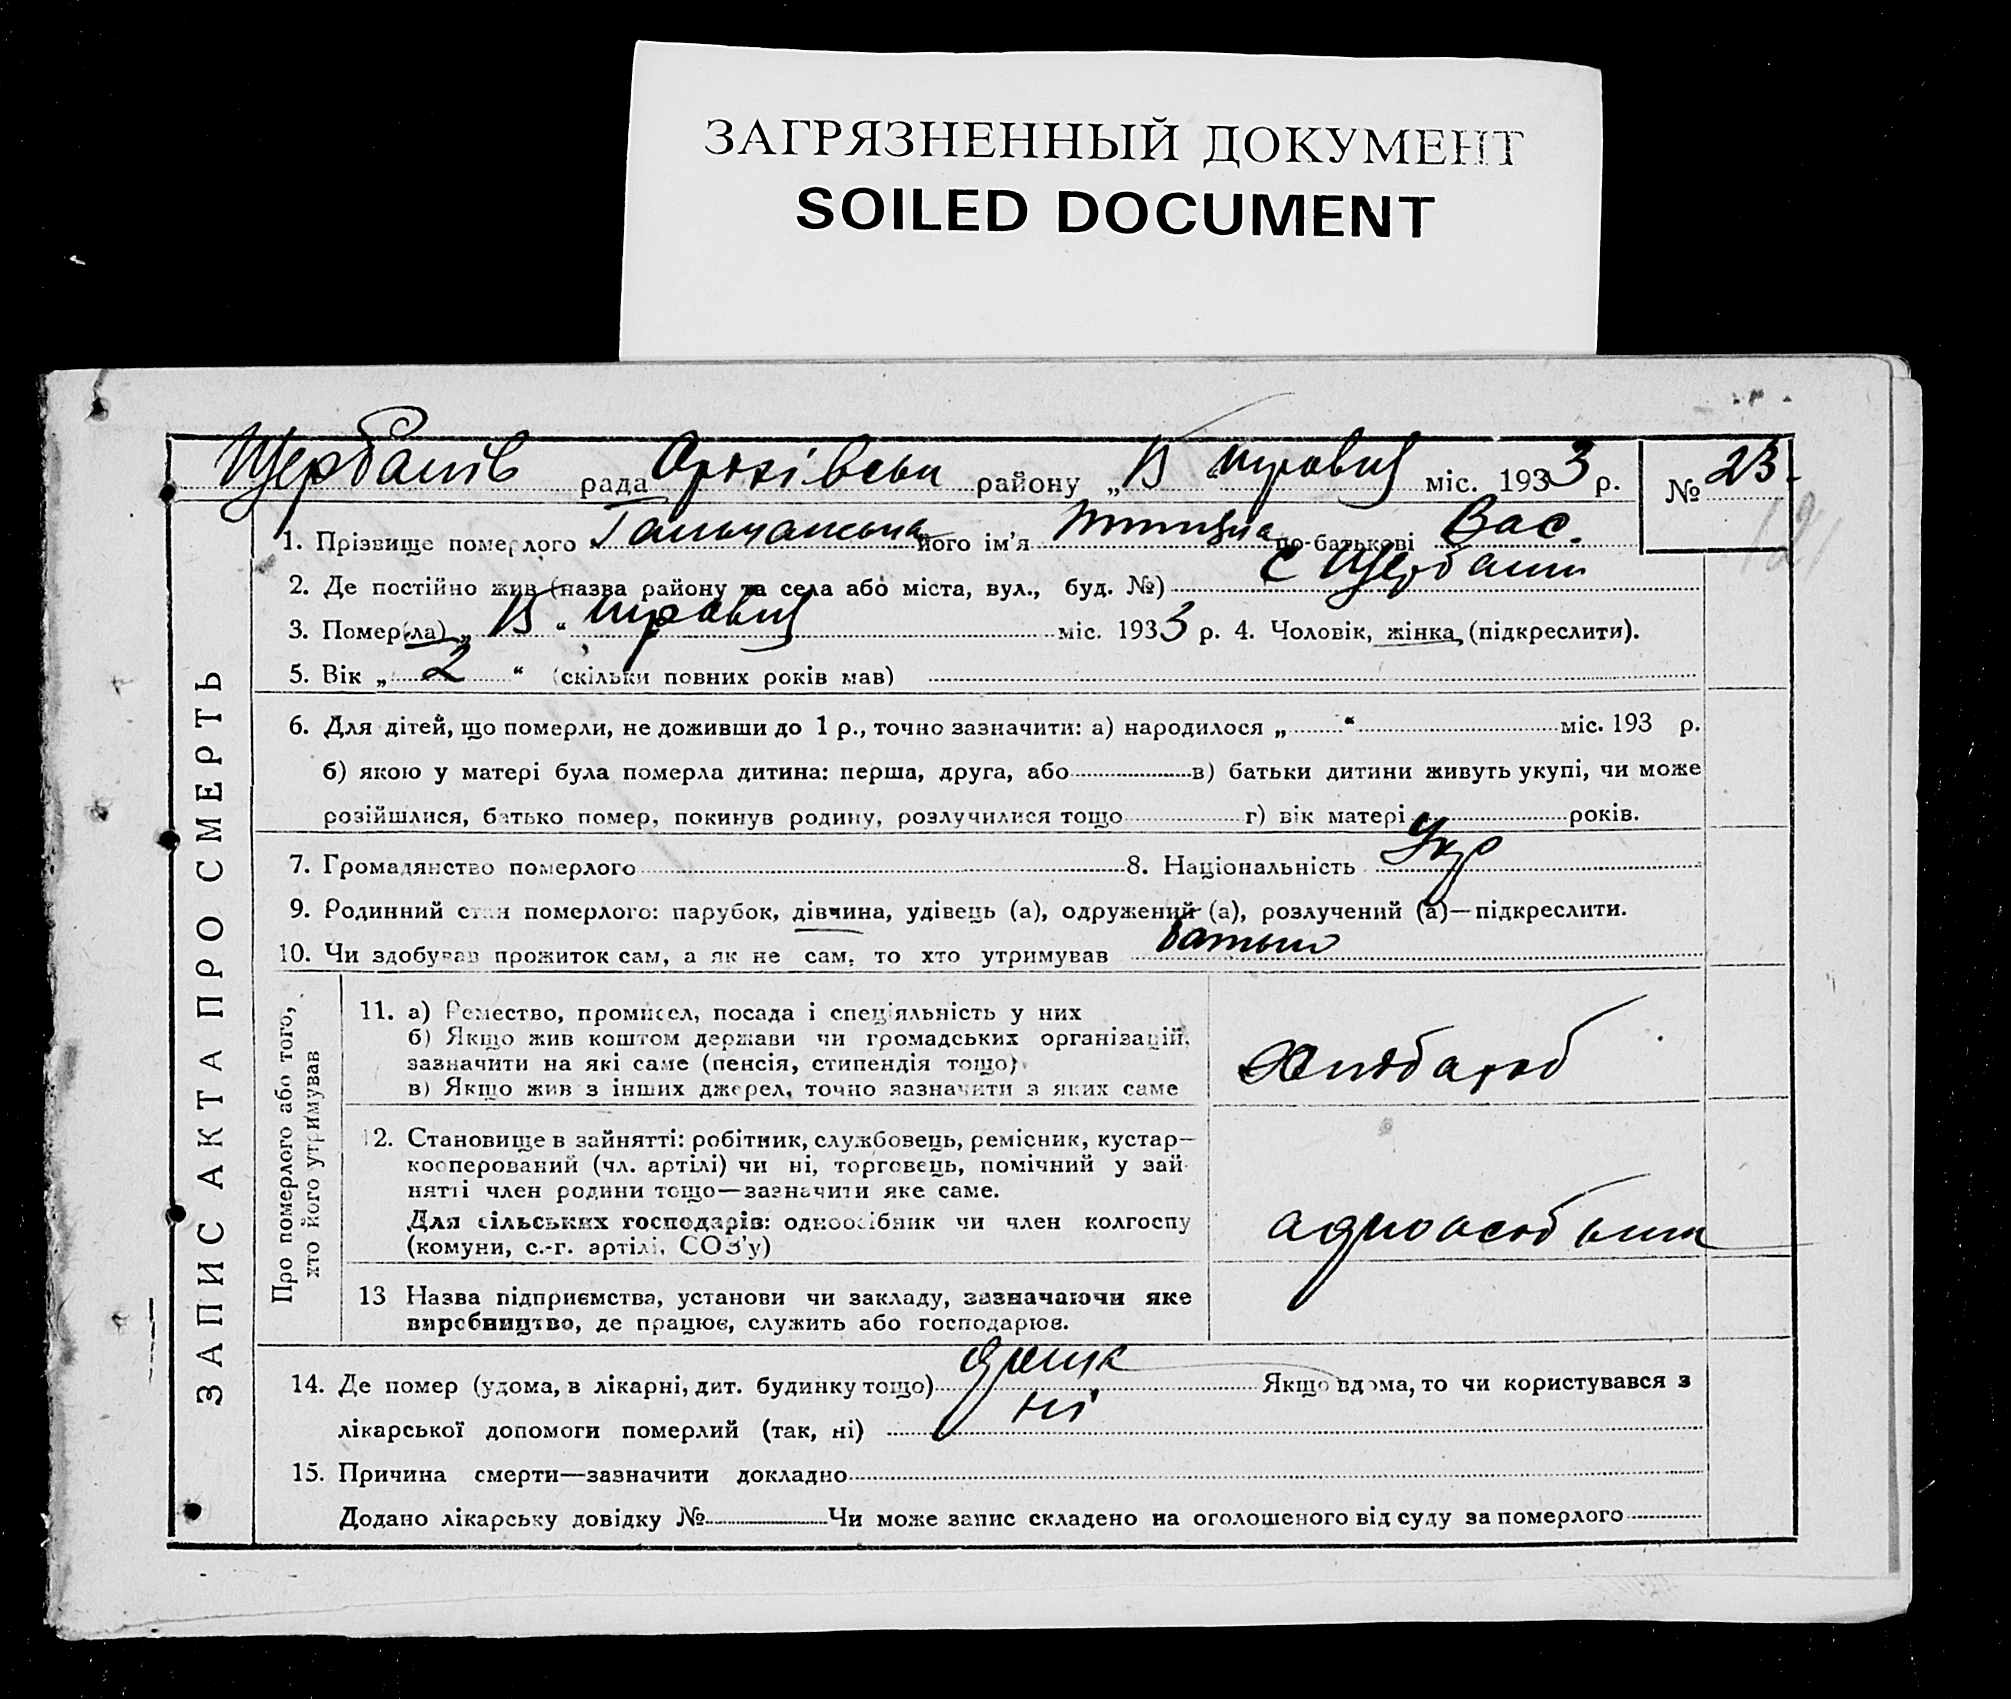 ЗАГРЯЗНЕННЫЙ ДОКУМЕНТ
SOILED DOCUMENT
рада району „ “ міс. 1933 р. № 23
1. Прізвище померлого його ім'я по-батькові Вас.
2. Де постійно жив (назва району та села або міста, вул., буд. №) с Щербани
3. Помер(ла) „ “ міс. 1933 р. 4. Чоловік, жінка (підкреслити).
5. Вік „ 2 “ (скільки повних років мав)
6. Для дітей, що померли, не доживши до 1 р., точно зазначити: а) народилося „ “ міс. 193 р.
б) якою у матері була померла дитина: перша, друга, або в) батьки дитини живуть укупі, чи може
розійшлися, батько помер, покинув родину, розлучилися тощо г) вік матері років.
7. Громадянство померлого 8. Національність Укр
9. Родинний стан померлого: парубок, дівчина, удівець (а), одружений (а), розлучений (а)—підкреслити.
10. Чи здобував прожиток сам, а як не сам, то хто утримував батько
ЗАПИС АКТА ПРО СМЕРТЬ
Про померлого або того,
хто його утримував
11. а) Ремество, промисел, посада і спеціяльність у них
б) Якщо жив коштом держави чи громадських організацій,
зазначити на які саме (пенсія, стипендія тощо)
в) Якщо жив з інших джерел, точно зазначити з яких саме
хлібороб
12. Становище в зайнятті: робітник, службовець, ремісник, кустар—
кооперований (чл. артілі) чи ні, торговець, помічний у зай-
нятті член родини тощо—зазначити яке саме.
Для сільських господарів: одноосібник чи член колгоспу
(комуни, с.-г. артілі, СОЗ'у)
13 Назва підприємства, установи чи закладу, зазначаючи яке
виробництво, де працює, служить або господарює.
14. Де помер (удома, в лікарні, дит. будинку тощо) Якщо вдома, то чи користувався з
лікарської допомоги померлий (так, ні) ні
15. Причина смерти—зазначити докладно
Додано лікарську довідку № Чи може запис складено на оголошеного від суду за померлого